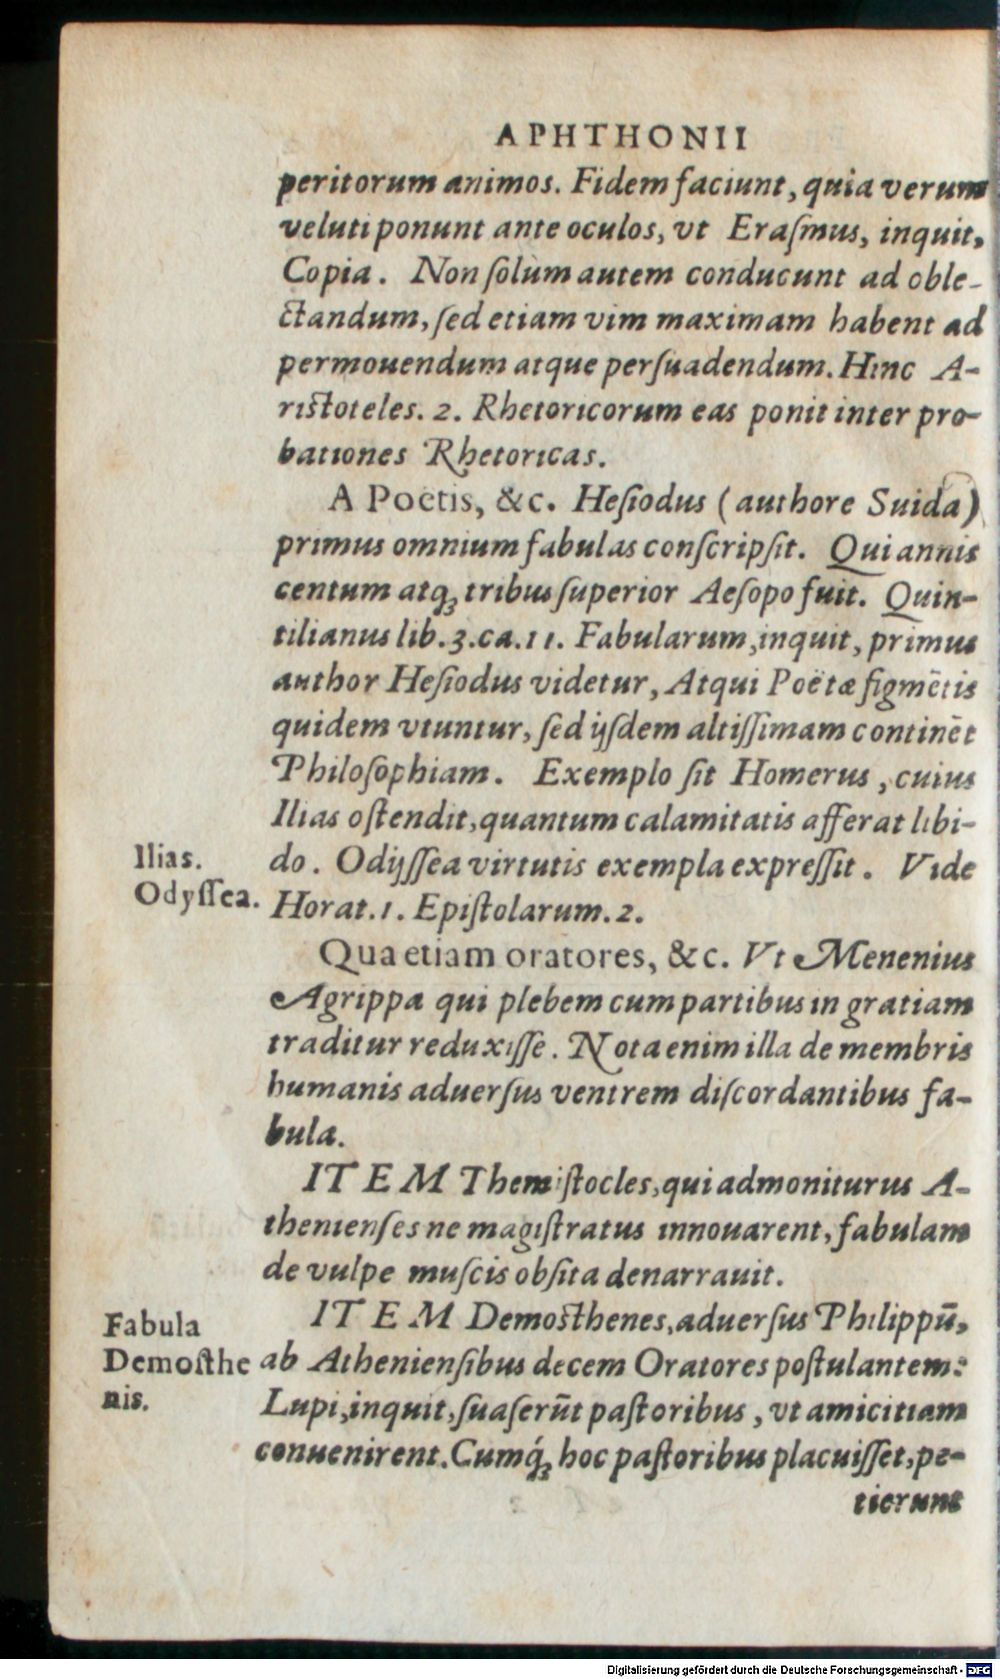 APHTHONII
peritorum animos. Fidem faciunt, quia verum
veluti ponunt ante oculos, vt Eraſmus, inquit,
Copia. Non ſolùm autem conducunt ad oble-
ctandum, ſed etiam vim maximam habent ad
permouendum atque perſuadendum. Hinc A-
riſtoteles. 2. Rhetoricorum eas ponit inter pro-
bationes Rhetoricas.
A Poëtis, &c. Heſiodus (authore Suida)
primus omnium fabulas conſcripſit. Qui annis
centum atq; tribus ſuperior Aeſopo fuit. Quin-
tilianus lib. 3. ca. 11. Fabularum, inquit, primus
author Heſiodus videtur, Atqui Poëtæ figmētis
quidem vtuntur, ſed ijſdem altiſſimam continēt
Philoſophiam. Exemplo ſit Homerus, cuius
Ilias oſtendit, quantum calamitatis afferat libi-
Ilias.
do. Odyſſea virtutis exempla expreſſit. Vide
Odyſſea.
Horat. 1. Epiſtolarum. 2.
Qua etiam oratores, &c. Vt Menenius
Agrippa qui plebem cum partibus in gratiam
traditur reduxiſſe. Nota enim illa de membris
humanis aduerſus ventrem diſcordantibus fa-
bula.
ITEM Themiſtocles, qui admoniturus A-
thenienſes ne magiſtratus innouarent, fabulam
de vulpe muſcis obſita denarrauit.
ITEM Demoſthenes, aduerſus Philippū,
Fabula
Demoſthe
nis.
ab Athenienſibus decem Oratores poſtulantem:
Lupi, inquit, ſuaſerūt paſtoribus, vt amicitiam
conuenirent. Cumq́; hoc paſtoribus placuiſſet, pe-
tierunt
Digitalisierung gefördert durch die Deutsche Forschungsgemeinschaft - DFG